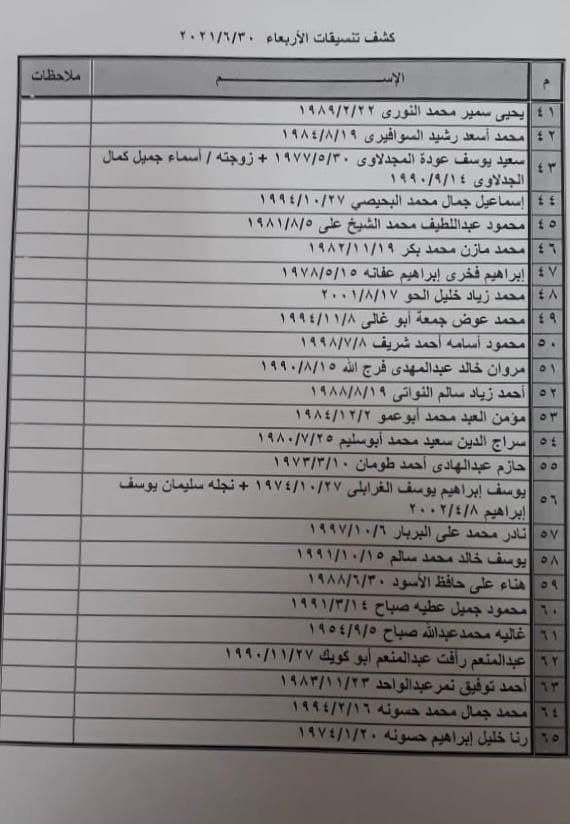 كشف تنسيقات الأربعاء ٢٠٢١/٦/٣٠
م الإســـــــــــم ملاحظات
٤١ يحيى سمير محمد النورى ١٩٨٩/٢/٢٢
٤٢ محمد أسعد رشيد السوافيرى ١٩٨٤/٨/١٩
٤٣ سعيد يوسف عودة المجدلاوى ١٩٧٧/٥/٣٠ + زوجته / أسماء جميل كمال
الجدلاوى ١٩٩٠/٩/١٤
٤٤ إسماعيل جمال محمد البحيصي ١٩٩٤/١٠/٢٧
٤٥ محمود عبداللطيف محمد الشيخ على ١٩٨١/٨/٥
٤٦ محمد مازن محمد بكر ١٩٨٢/١١/١٩
٤٧ إبراهيم فخرى إبراهيم عفانه ١٩٧٨/٥/١٥
٤٨ محمد زياد خليل الحو ٢٠٠١/٨/١٧
٤٩ محمد عوض جمعة أبو غالى ١٩٩٤/١١/٨
٥٠ محمود أسامه أحمد شريف ١٩٩٨/٧/٨
٥١ مروان خالد عبدالمهدى فرج الله ١٩٩٠/٨/١٥
٥٢ أحمد زياد سالم النواتى ١٩٨٨/٨/١٩
٥٣ مؤمن العبد محمد أبوعمو ١٩٨٤/١٢/٢
٥٤ سراج الدين سعيد محمد أبوسليم ١٩٨٠/٧/٢٥
٥٥ حازم عبدالهادى أحمد طومان ١٩٧٣/٣/١٠
٥٦ يوسف إبراهيم يوسف الغرابلى ١٩٧٤/١٠/٢٧ + نجله سليمان يوسف
إبراهيم ٢٠٠٢/٤/٨
٥٧ نادر محمد على البربار ١٩٩٧/١٠/٦
٥٨ يوسف خالد محمد سالم ١٩٩١/١٠/١٥
٥٩ هناء على حافظ الأسود ١٩٨٨/٦/٣٠
٦٠ محمود جميل عطيه صباح ١٩٩١/٣/١٤
٦١ غاليه محمدعبدالله صباح ١٩٥٤/٩/٥
٦٢ عبدالمنعم رأفت عبدالمنعم أبو كويك ١٩٩٠/١١/٢٧
٦٣ أحمد توفيق نمرعبدالواحد ١٩٨٣/١١/٢٣
٦٤ محمد جمال محمد حسونه ١٩٩٤/٢/١٦
٦٥ رنا خليل إبراهيم حسونه ١٩٧٤/١/٢٠